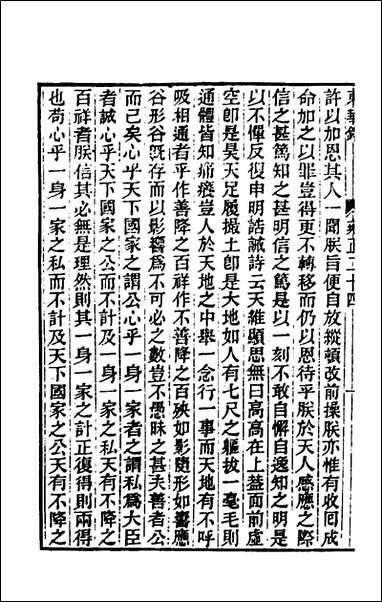 東華錄　雍正二十四
許以加恩其人一聞朕旨便自放縱頓改前操朕亦惟有收囘成
命加之以罪豈得更不轉移而仍以恩待乎朕於天人感應之際
信之甚篤知之甚明信之篤是以一刻不敢自懈自逸知之明是
以不憚反復申明誥誡詩云天維顯思無曰高高在上蓋面前虛
空卽是昊天足履撮土卽是大地如人有七尺之軀拔一毫毛則
通體皆知痛癢豈人於天地之中舉一念行一事而天地有不呼
吸相通者乎作善降之百祥作不善降之百殃如影隨形如響應
谷形谷旣存而以影響爲不可必之數豈不愚昧之甚夫善者公
而已矣心乎天下國家之謂公心乎一身一家者之謂私爲大臣
者誠心乎天下國家之公而不計及一身一家之私天有不降之
百祥者朕信其必無是理然則其一身一家之計正復得則兩得
也苟心乎一身一家之私而不計及天下國家之公天有不降之